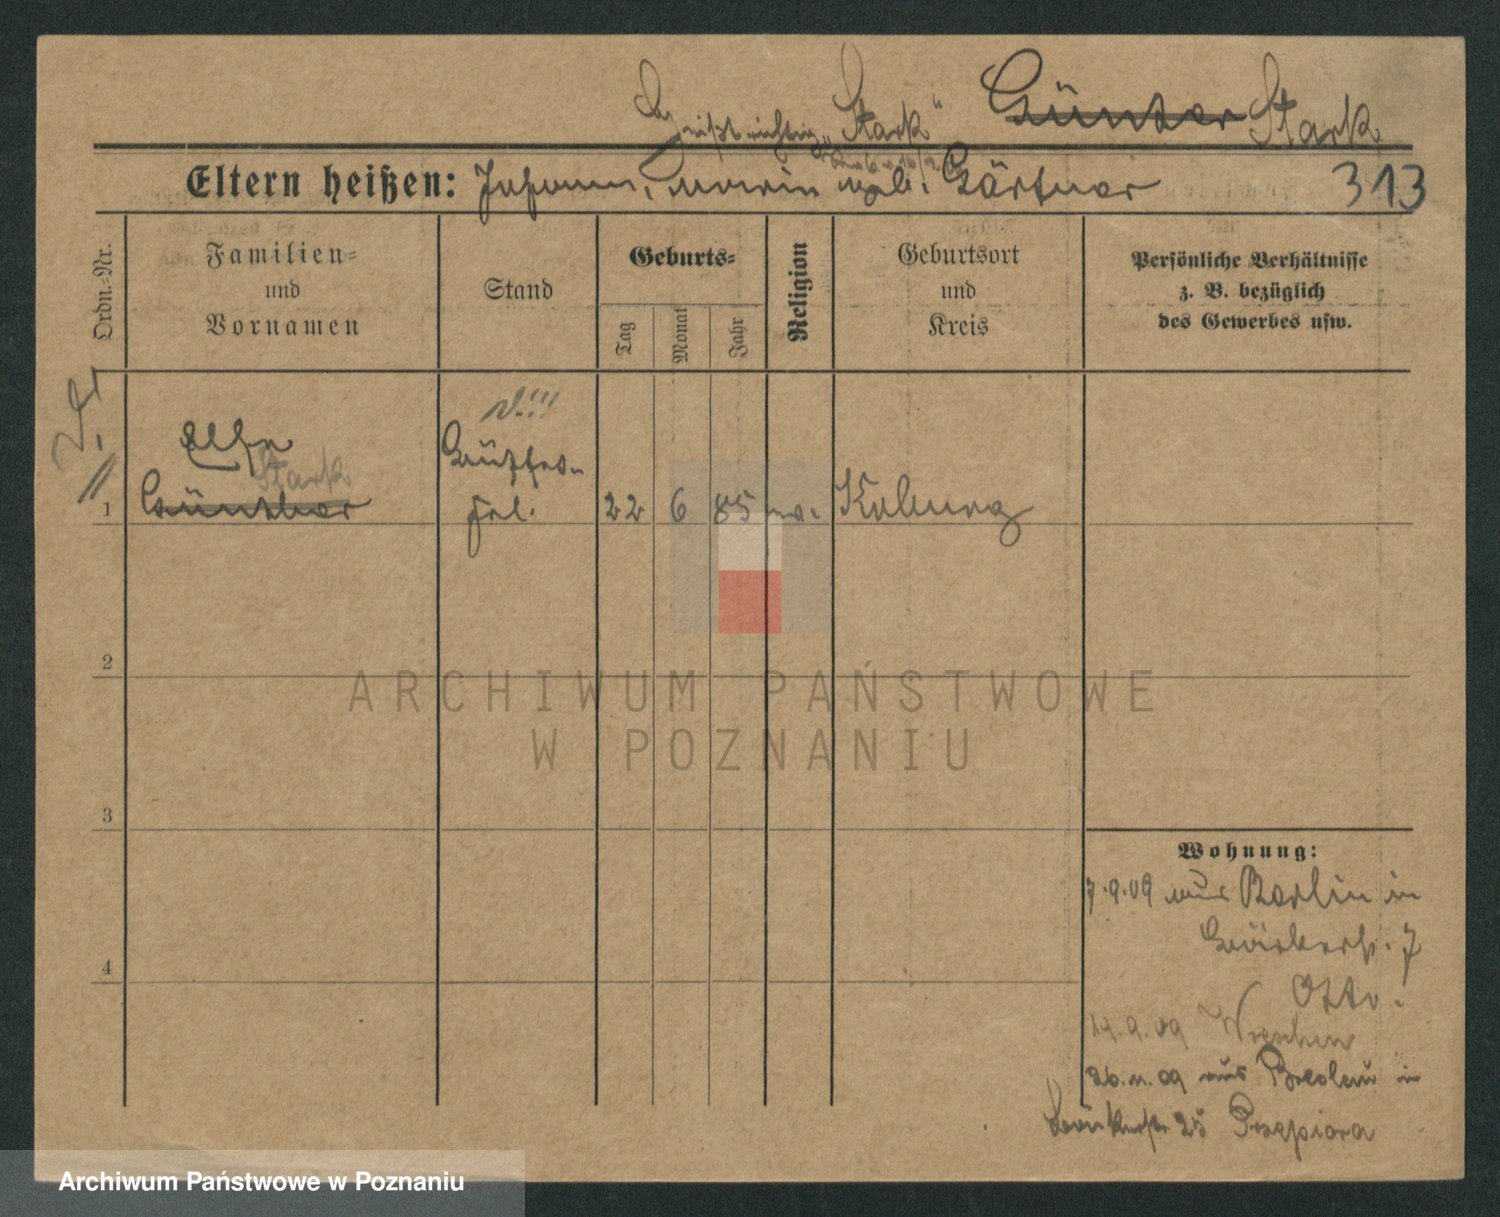 heißt richtig „Stark“ Günter Stark
Eltern heißen: Johann, Maria geb. Gärtner 313
Ordn.-Nr.
Familien-
und
Vornamen
Stand
Geburts-
Tag
Monat
Jahr
Religion
Geburtsort
und
Kreis
Persönliche Verhältnisse
z. B. bezüglich
des Gewerbes usw.
Stark
1 Günther
Büffet-
Frl. 22 6 85 ev. Koburg
2
3
4
Wohnung:
7.9.09 aus Berlin in
Bäckerst. 7
Otto.
14.9.09 Wreschen
26.11.09 aus Breslau in
Bäckerstr 25 Przepiora
ARCHIWUM PAŃSTWOWE
W POZNANIU
Archiwum Państwowe w Poznaniu